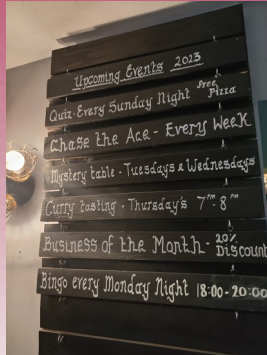 Upcoming Events 2023
Quiz - Every Sunday Night free Pizza
Chase the Ace - Every Week
Mystery table - Tuesdays & Wednesdays
Curry tasting - Thursday's 7pm - 8pm
Business of the Month - 20% Discount
Bingo every Monday Night 18:00 - 20:00